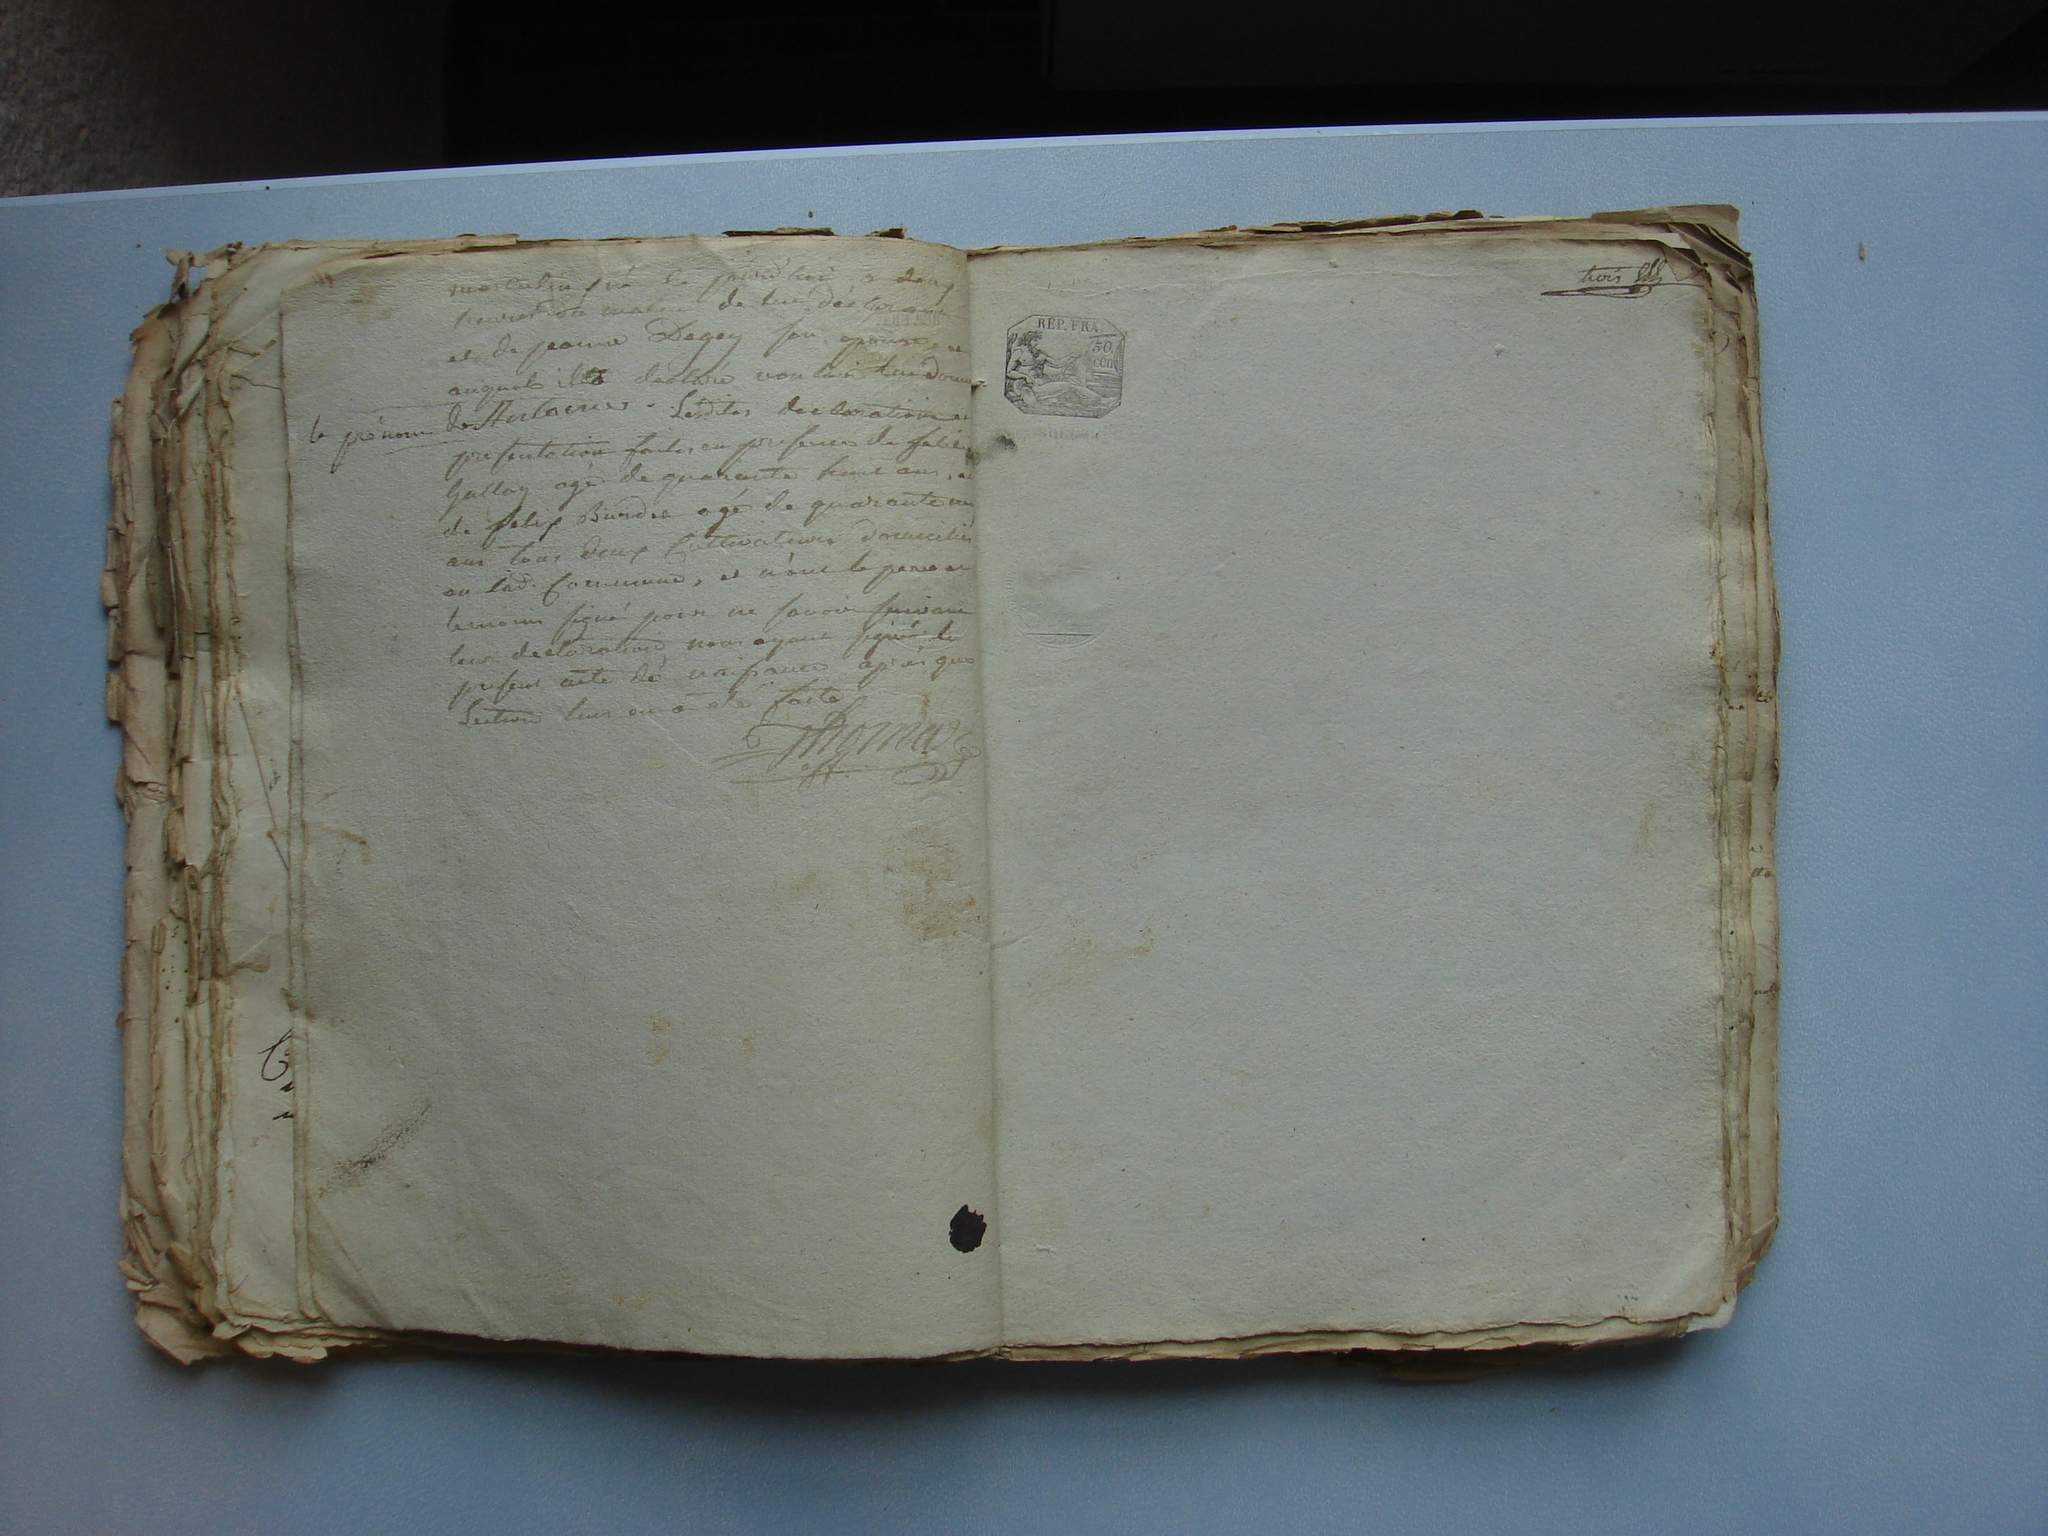 masculin né le jourd'hui à deux
heures du matin de lui déclarant
et de jeanne Degey son epouse, et
auquel il a declaré vouloir lui donner
le prénom de Antoine. Lesdites declaration et
presentation faites en presence de
agé de quarante huit ans, et
de felix agé de quarante
ans tous deux Cultivateurs domiciliés
en lad. Commune, et n'ont le pere et
temoins signé pour ne savoir suivant
leur declaration nous ayant signé le
present acte de naissance après que
Lecture leur en a été faite
Thomas
trois
REP. FRA.
50
cen